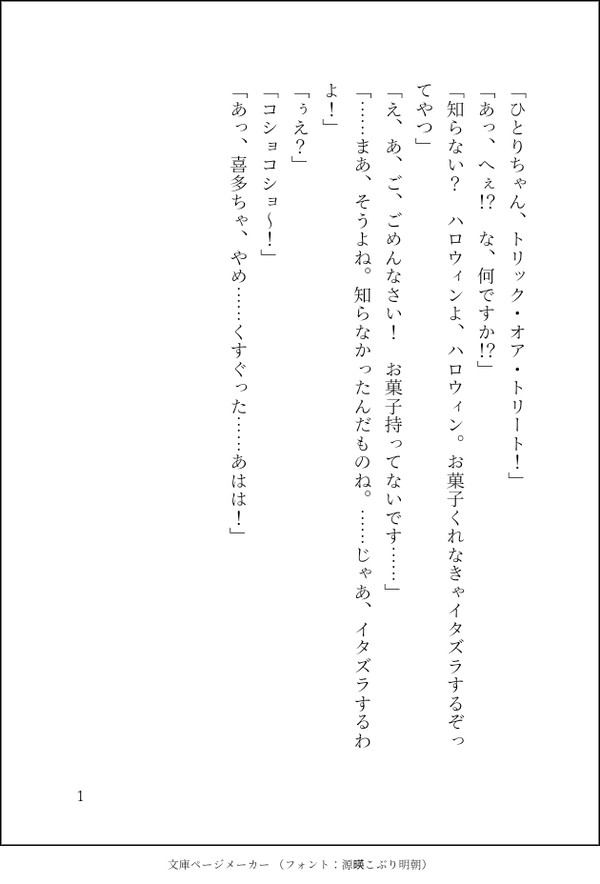 「ひとりちゃん、トリック・オア・トリート！」
「あっ、へぇ!?　な、何ですか!?」
「知らない？　ハロウィンよ、ハロウィン。お菓子くれなきゃイタズラするぞっ
てやつ」
「え、あ、ご、ごめんなさい！　お菓子持ってないです……」
「……まあ、そうよね。知らなかったんだものね。……じゃあ、イタズラするわ
よ！」
「ぅえ？」
「コショコショ〜！」
「あっ、喜多ちゃ、やめ……くすぐった……あはは！」
1
文庫ページメーカー（フォント：源暎こぶり明朝）